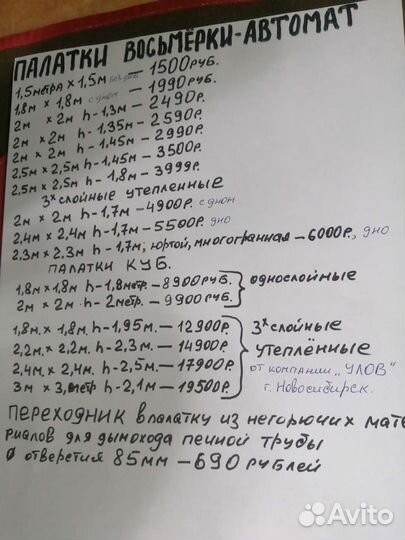 ПАЛАТКИ ВОСЬМЁРКИ-АВТОМАТ
1,5метра х 1,5м без дна — 1500РУБ.
1,8м х 1,8м с дном — 1990РУБ.
2м х 2м h-1,3м — 2490Р.
2м х 2м h-1,35м — 2590Р.
2м х 2м h-1,45м — 2990Р.
2,5м х 2,5м h-1,45м — 3500Р.
2,5м х 2,5м h-1,8м — 3999Р.
3х слойные утепленные
2м х 2м h-1,7м — 4900Р. с дном
2,4м х 2,4м h-1,7м — 5500Р. дно
2,3м х 2.3м h-1,7м, юртой, многогранная — 6000Р., дно
ПАЛАТКИ КУБ.
1,8м х 1,8м h-1,8метр. — 8900РУБ. однослойные
2м х 2м h-2метр. — 9900РУБ.
1,8м. х 1,8м. h-1,95м. — 12900Р. 3х слойные
2,2м. х 2,2м. h-2,3м. — 14900Р. утеплённые
2,4м. х 2,4м. h-2,5м. — 17900Р. от компании „УЛОВ"
3м х 3,метр h-2,1м — 19500Р. г. Новосибирск.
ПЕРЕХОДНИК в палатку из негорючих мате
риалов для дымохода печной трубы
Ø отверстия 85мм — 690 рублей
Avito